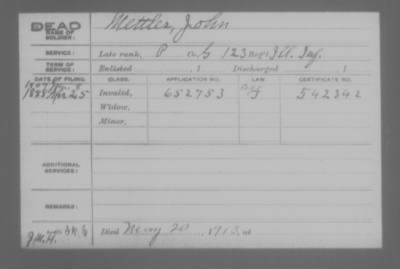 DEAD
NAME OF SOLDIER: Mettler, John
SERVICE: Late rank, P Co. G 123 Reg't Ill. Inf.
TERM OF SERVICE: Enlisted , 1 Discharged , 1
DATE OF FILING. CLASS. APPLICATION NO. LAW. CERTIFICATE NO.
1888 Apr 25 Invalid, 652753 542342
Widow,
Minor,
ADDITIONAL SERVICES:
REMARKS:
Died 20, 1913, at